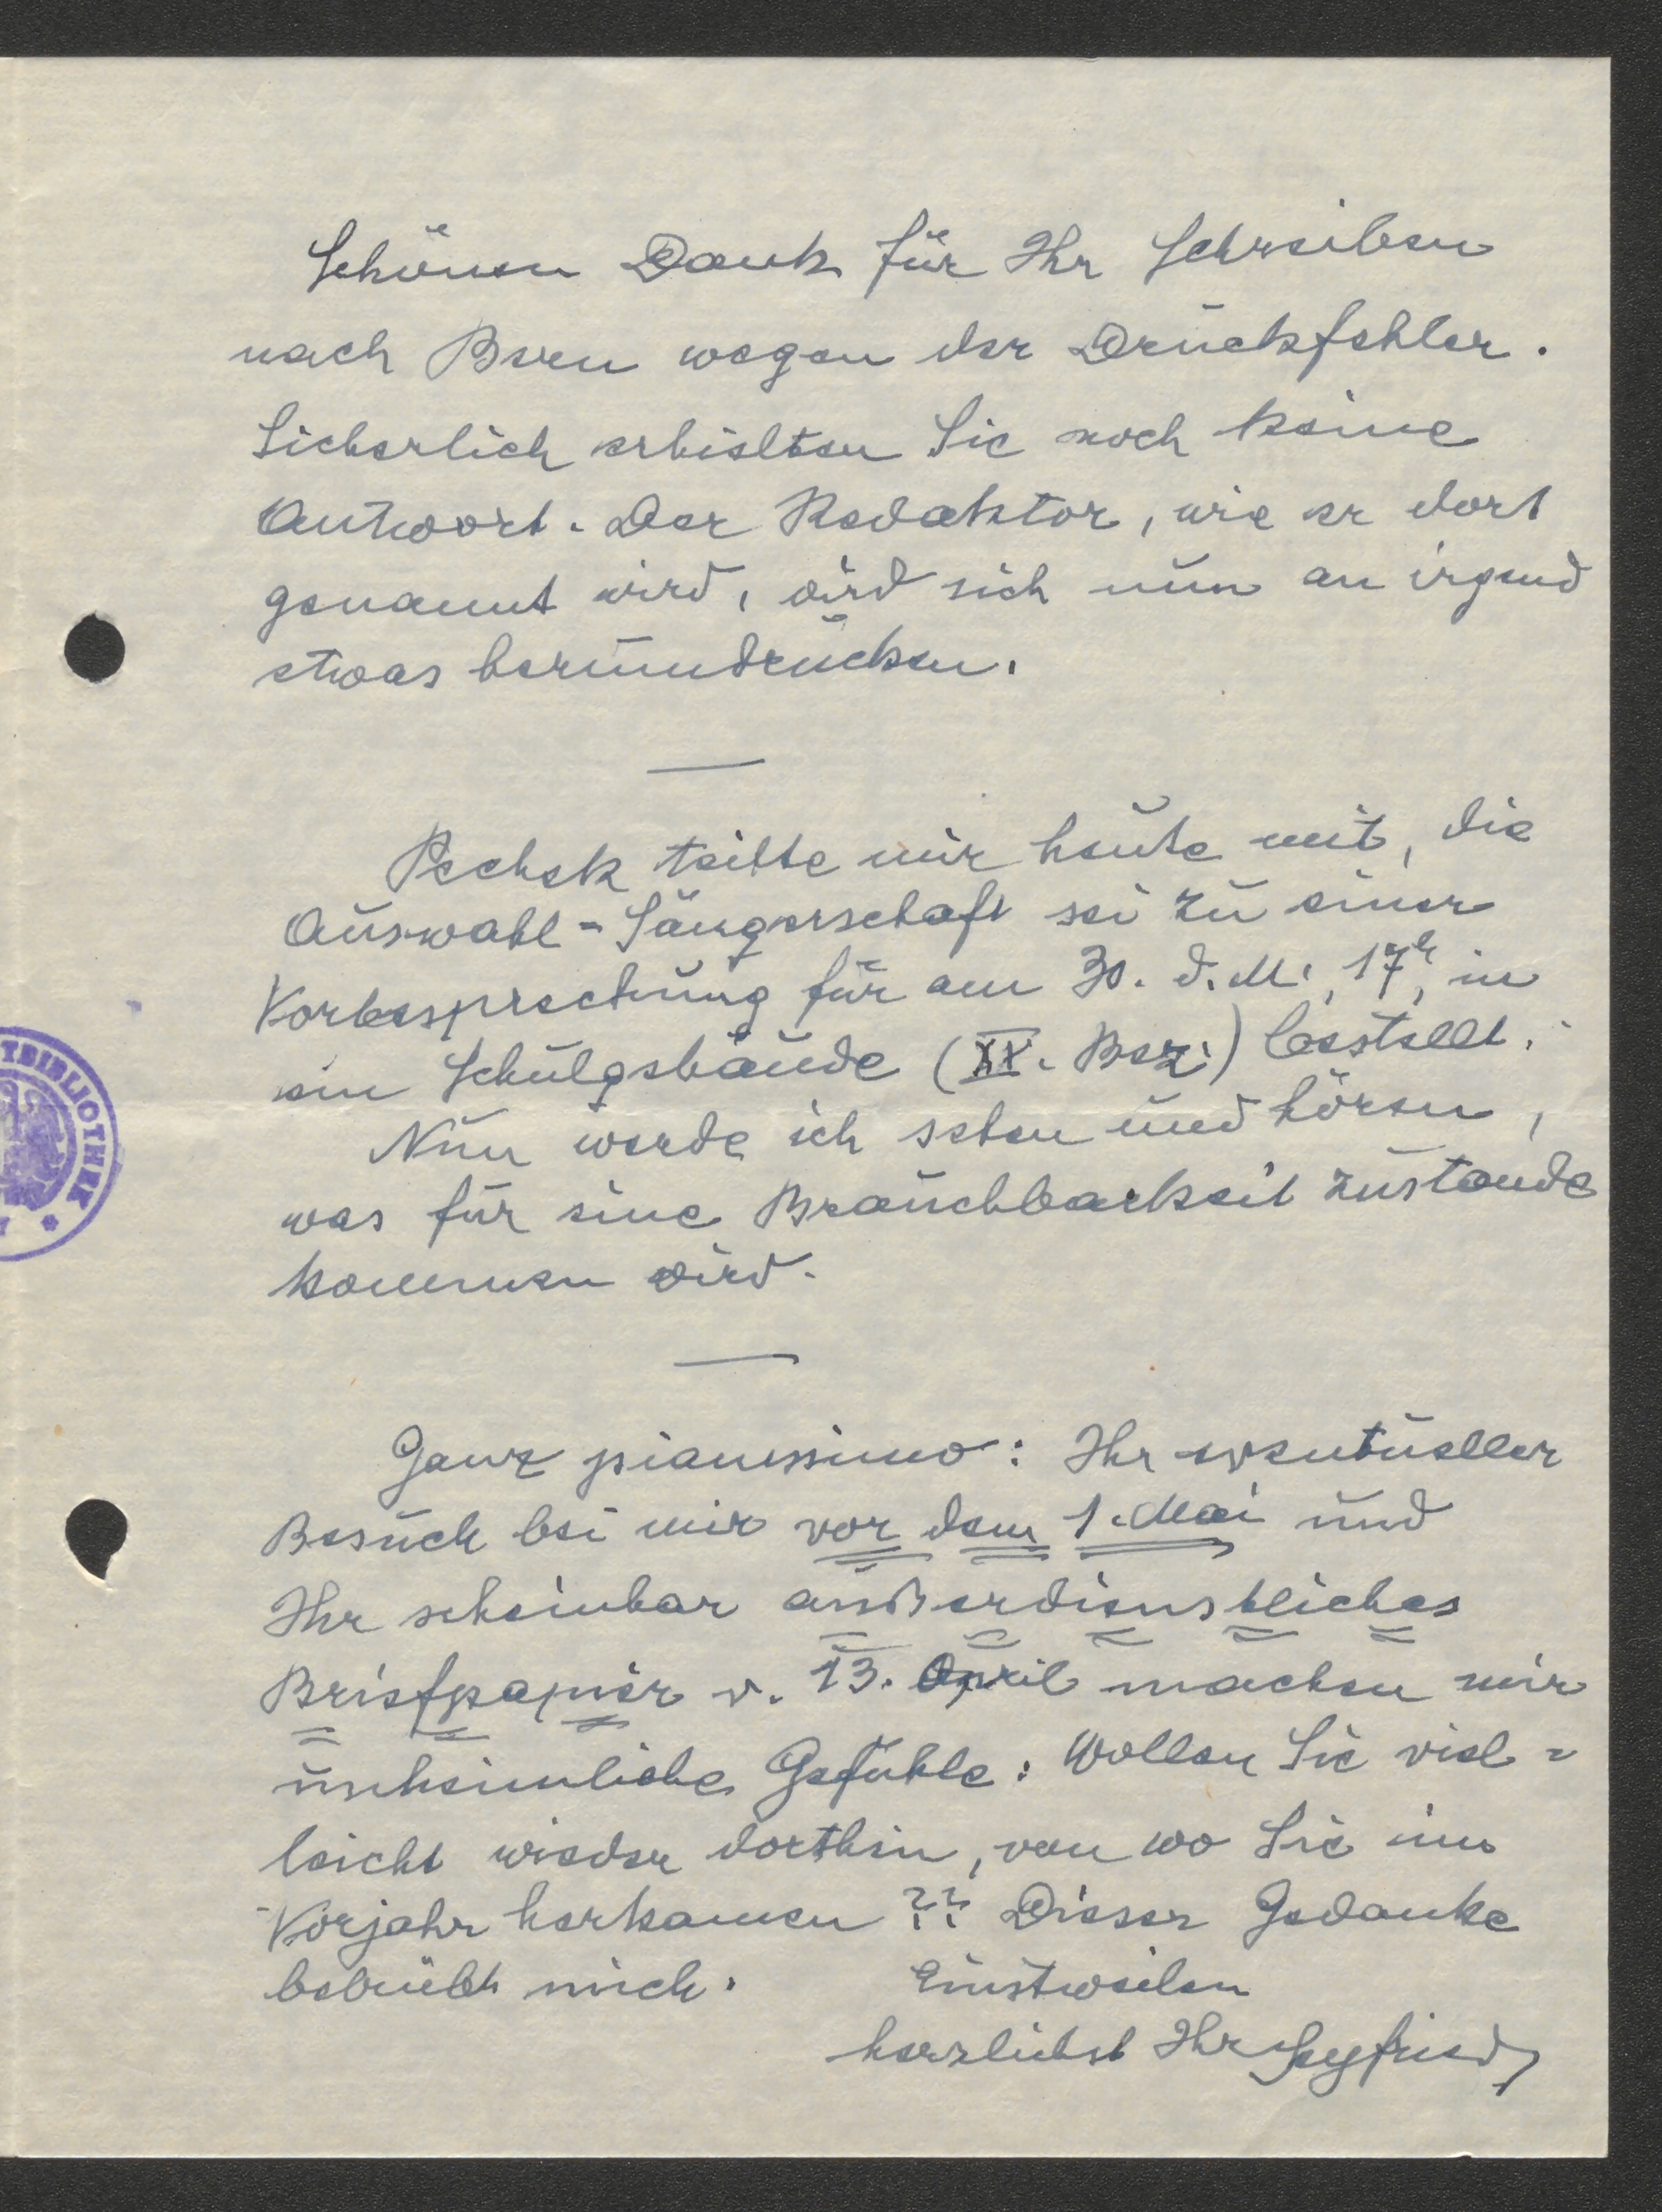 Schönen Dank für Ihr Schreiben
nach Bern wegen der Druckfehler.
Sicherlich erhielten Sie noch keine
Antwort. Der Redaktor, wie er dort
genannt wird, wird sich nun an irgend
etwas herumdrucksen.
Pechek teilte mir heute mit, die
Auswahl-Sängerschaft sei zu einer
Vorbesprechung für am 30. d. M., 17h, in
ein Schulgebäude (XX. Bez.) bestellt.
Nun werde ich sehen und hören,
was für eine Brauchbarkeit zustande
kommen wird.
Ganz pianissimo: Ihr eventueller
Besuch bei mir vor dem 1. Mai und
Ihr scheinbar außerdienstliches
Briefpapier v. 13. April machen mir
unheimliche Gefühle: Wollen Sie viel=
leicht wieder dorthin, von wo Sie im
Vorjahr herkamen ?? Dieser Gedanke
betrübt mich. Einstweilen
herzlichst Ihr Seyfried
TBIBLIOTHEK